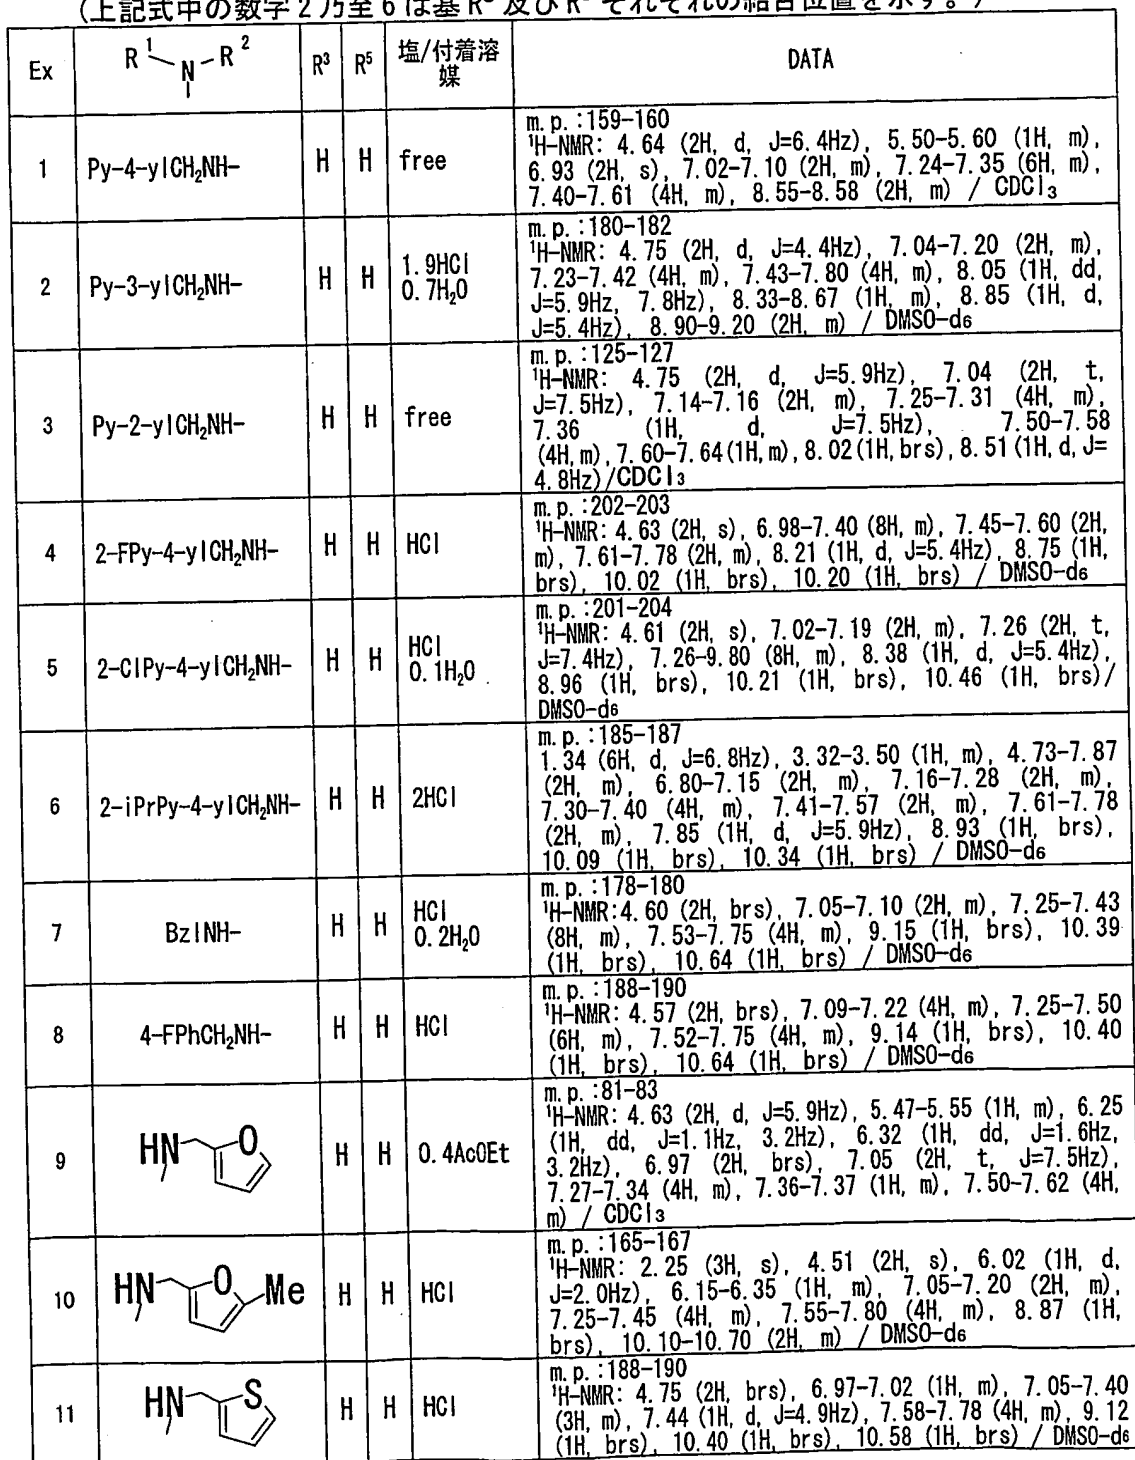 (上記式中の数字2乃至6は基R 及びR それぞれの結合位置を示す。)
Ex
R1 N R2
R3
R5
塩/付着溶
媒
DATA
1
Py-4-ylCH2NH-
H
H
free
m.p.:159-160
1H-NMR: 4.64 (2H, d, J=6.4Hz), 5.50-5.60 (1H, m),
6.93 (2H, s), 7.02-7.10 (2H, m), 7.24-7.35 (6H, m),
7.40-7.61 (4H, m), 8.55-8.58 (2H, m) / CDCl3
2
Py-3-ylCH2NH-
H
H
1.9HCl
0.7H2O
m.p.:180-182
1H-NMR: 4.75 (2H, d, J=4.4Hz), 7.04-7.20 (2H, m),
7.23-7.42 (4H, m), 7.43-7.80 (4H, m), 8.05 (1H, dd,
J=5.9Hz, 7.8Hz), 8.33-8.67 (1H, m), 8.85 (1H, d,
J=5.4Hz), 8.90-9.20 (2H, m) / DMSO-d6
3
Py-2-ylCH2NH-
H
H
free
m.p.:125-127
1H-NMR: 4.75 (2H, d, J=5.9Hz), 7.04 (2H, t,
J=7.5Hz), 7.14-7.16 (2H, m), 7.25-7.31 (4H, m),
7.36 (1H, d, J=7.5Hz), 7.50-7.58
(4H, m), 7.60-7.64(1H, m), 8.02(1H, brs), 8.51(1H, d, J=
4.8Hz)/CDCl3
4
2-FPy-4-ylCH2NH-
H
H
HCl
m.p.:202-203
1H-NMR: 4.63 (2H, s), 6.98-7.40 (8H, m), 7.45-7.60 (2H,
m), 7.61-7.78 (2H, m), 8.21 (1H, d, J=5.4Hz), 8.75 (1H,
brs), 10.02 (1H, brs), 10.20 (1H, brs) / DMSO-d6
5
2-ClPy-4-ylCH2NH-
H
H
HCl
0.1H2O
m.p.:201-204
1H-NMR: 4.61 (2H, s), 7.02-7.19 (2H, m), 7.26 (2H, t,
J=7.4Hz), 7.26-9.80 (8H, m), 8.38 (1H, d, J=5.4Hz),
8.96 (1H, brs), 10.21 (1H, brs), 10.46 (1H, brs)/
DMSO-d6
6
2-iPrPy-4-ylCH2NH-
H
H
2HCl
m.p.:185-187
1.34 (6H, d, J=6.8Hz), 3.32-3.50 (1H, m), 4.73-7.87
(2H, m), 6.80-7.15 (2H, m), 7.16-7.28 (2H, m),
7.30-7.40 (4H, m), 7.41-7.57 (2H, m), 7.61-7.78
(2H, m), 7.85 (1H, d, J=5.9Hz), 8.93 (1H, brs),
10.09 (1H, brs), 10.34 (1H, brs) / DMSO-d6
7
BzlNH-
H
H
HCl
0.2H2O
m.p.:178-180
1H-NMR:4.60 (2H, brs), 7.05-7.10 (2H, m), 7.25-7.43
(8H, m), 7.53-7.75 (4H, m), 9.15 (1H, brs), 10.39
(1H, brs), 10.64 (1H, brs) / DMSO-d6
8
4-FPhCH2NH-
H
H
HCl
m.p.:188-190
1H-NMR: 4.57 (2H, brs), 7.09-7.22 (4H, m), 7.25-7.50
(6H, m), 7.52-7.75 (4H, m), 9.14 (1H, brs), 10.40
(1H, brs), 10.64 (1H, brs) / DMSO-d6
9
HN O
H
H
0.4AcOEt
m.p.:81-83
1H-NMR: 4.63 (2H, d, J=5.9Hz), 5.47-5.55 (1H, m), 6.25
(1H, dd, J=1.1Hz, 3.2Hz), 6.32 (1H, dd, J=1.6Hz,
3.2Hz), 6.97 (2H, brs), 7.05 (2H, t, J=7.5Hz),
7.27-7.34 (4H, m), 7.36-7.37 (1H, m), 7.50-7.62 (4H,
m) / CDCl3
10
HN O Me
H
H
HCl
m.p.:165-167
1H-NMR: 2.25 (3H, s), 4.51 (2H, s), 6.02 (1H, d,
J=2.0Hz), 6.15-6.35 (1H, m), 7.05-7.20 (2H, m),
7.25-7.45 (4H, m), 7.55-7.80 (4H, m), 8.87 (1H,
brs), 10.10-10.70 (2H, m) / DMSO-d6
11
HN S
H
H
HCl
m.p.:188-190
1H-NMR: 4.75 (2H, brs), 6.97-7.02 (1H, m), 7.05-7.40
(3H, m), 7.44 (1H, d, J=4.9Hz), 7.58-7.78 (4H, m), 9.12
(1H, brs), 10.40 (1H, brs), 10.58 (1H, brs) / DMSO-d6